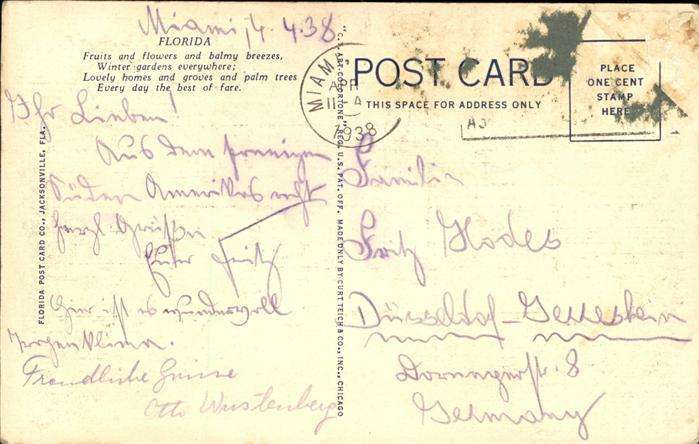 Miami, 4. 4. 38
FLORIDA
Fruits and flowers and balmy breezes,
Winter gardens everywhere;
Lovely homes and groves and palm trees
Every day the best of fare.
Ihr Lieben!
Aus dem sonnigen
Süden Amerikas recht
herzl. Grüße
Euer Fritz
Hier ist es wundervoll
Freundliche Grüsse
Otto Wustenberg
FLORIDA POST CARD CO., JACKSONVILLE, FLA.
"C. T. ART-COLORTONE" REG. U. S. PAT. OFF. MADE ONLY BY CURT TEICH & CO., INC., CHICAGO
MIAMI
APR
1938
POST CARD
THIS SPACE FOR ADDRESS ONLY
PLACE
ONE CENT
STAMP
HERE
Familie
Fritz Hodes
Düsseldorf-
8
Germany